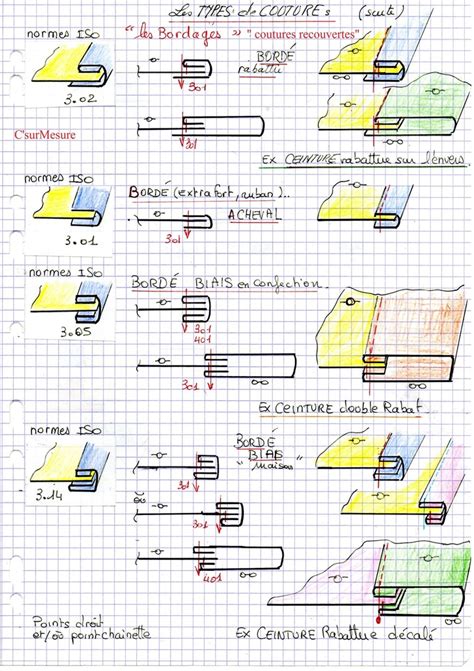 Les TYPES de COUTURES (suite)
normes ISO
"les Bordages" " coutures recouvertes"
BORDÉ
rabattu
301
3.02
C'surMesure
301
Ex CEINTURE rabattue sur l'envers.
normes ISO
BORDÉ (extra fort, ruban)..
A CHEVAL
301
3.01
normes ISO
BORDÉ BIAIS en confection.
301
401
3.05
301
Ex CEINTURE double Rabat.
normes ISO
BORDÉ
BIAIS
"maison"
301
3.14
ou
301
401
Points droit
et/ou point chainette
Ex CEINTURE Rabattue décalé